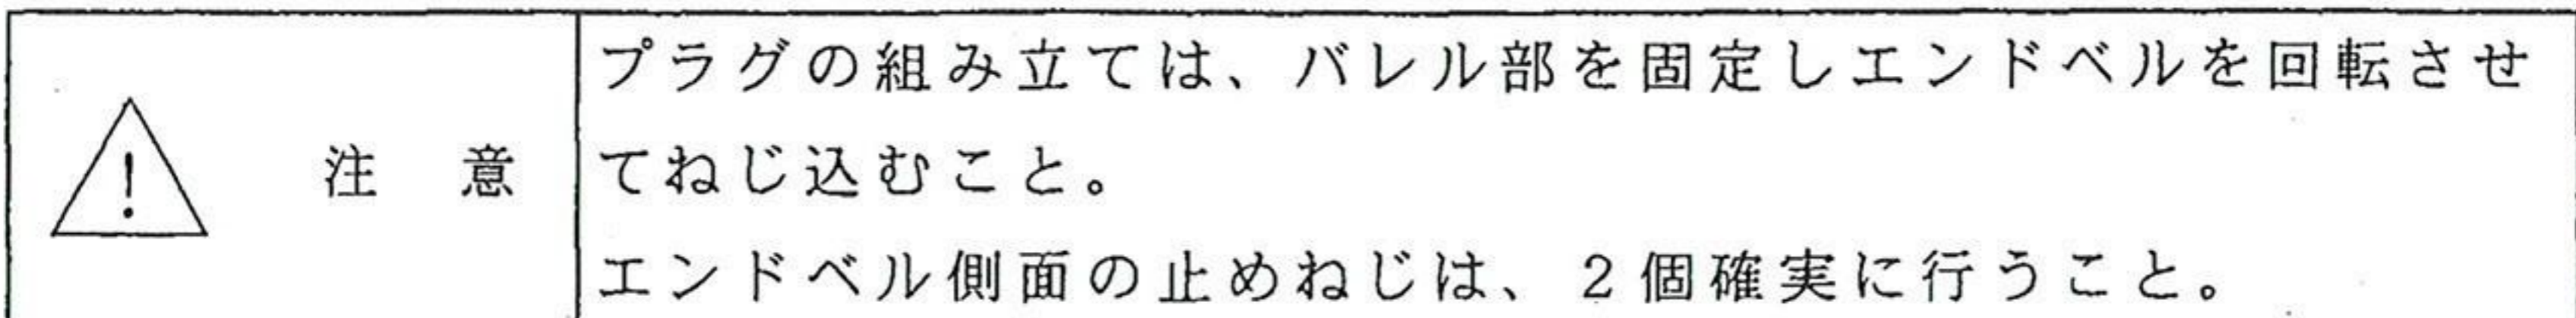 プラグの組み立ては、バレル部を固定しエンドベルを回転させ
! 注 意
てねじ込むこと。
エンドベル側面の止めねじは、2個確実に行うこと。